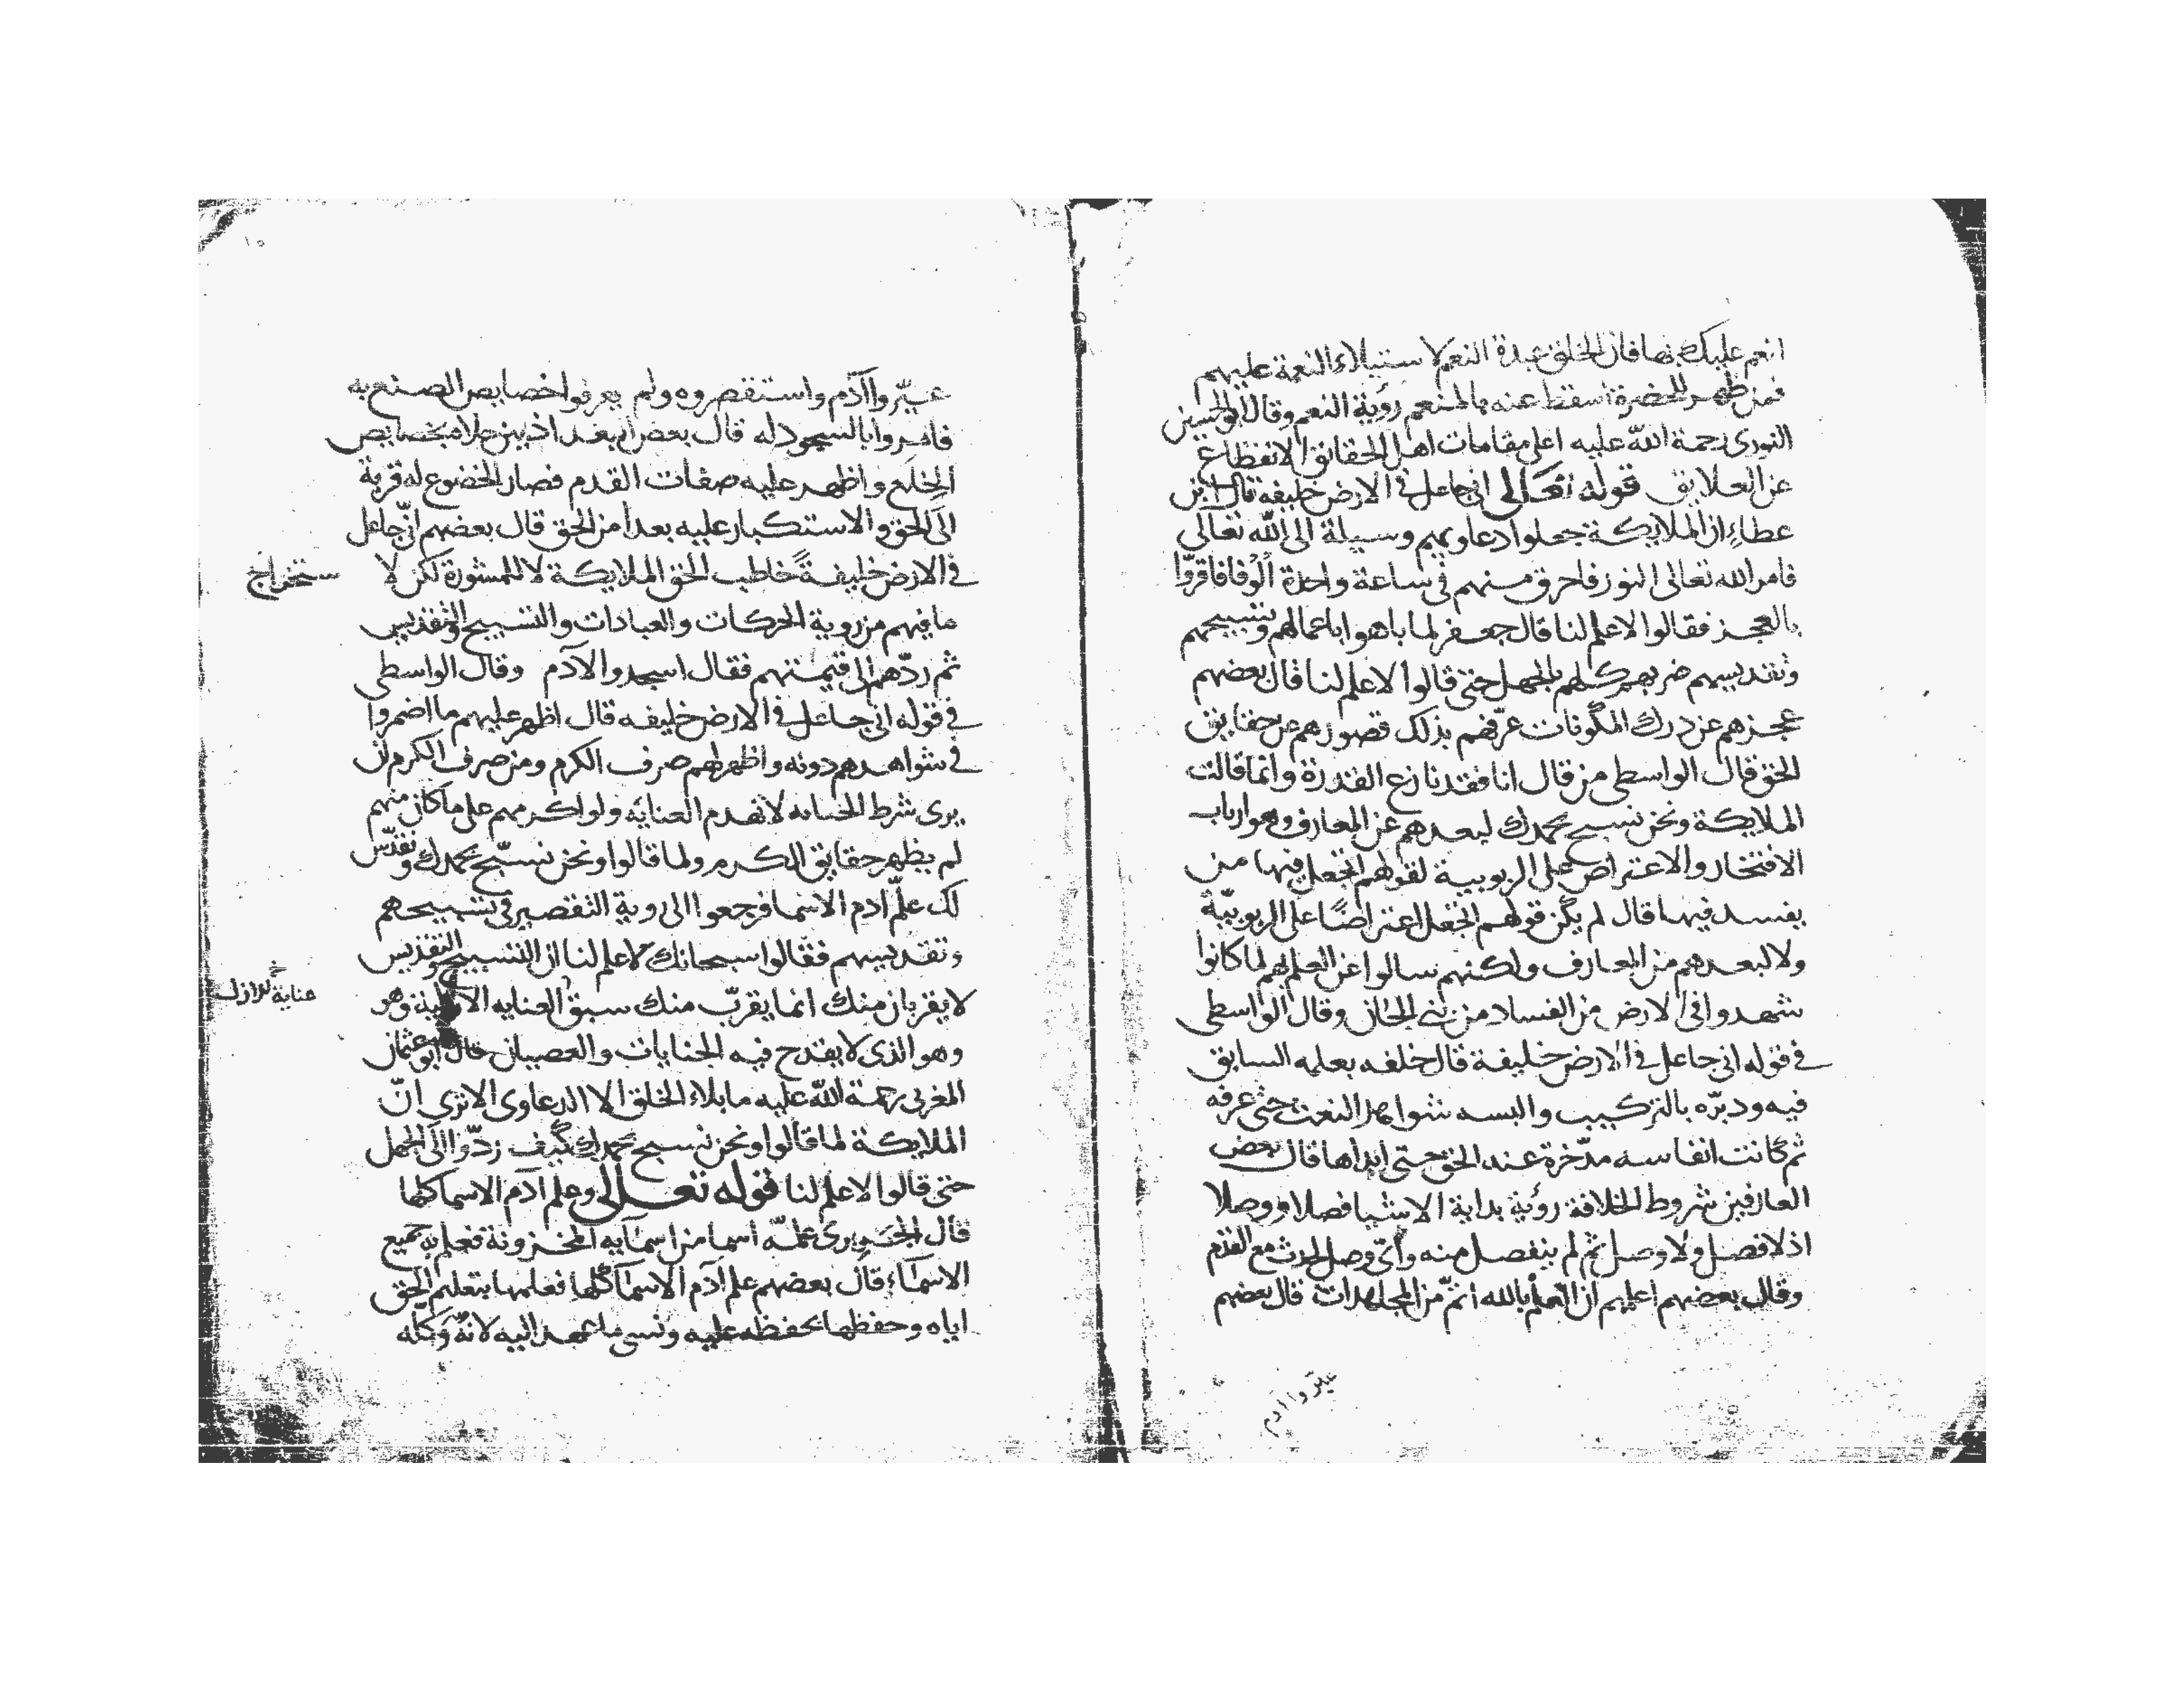 انعم عليك بها فان الخلق عبدة النعم لاستيلاء النعمة عليهم
فمن ظهر للحضرة اسقط عنه بالمنعم رؤية النعم وقال ابو الحسين
النورى رحمة الله عليه اعلى مقامات اهل الحقائق الانقطاع
عن العلايق قوله تعالى انى جاعل فى الارض خليفة قال ابن
عطاء ان الملايكة جعلوا دعاويهم وسيلة الى الله تعالى
فامر الله تعالى النور فاحرق منهم فى ساعة واحدة الوفا فاقروا
بالعجز فقالوا لا علم لنا قال جعفر لما باهوا باعمالهم وتسبيحهم
وتقديسهم ضربهم كلهم بالجهل حتى قالوا لا علم لنا قال بعضهم
عجزهم عن درك المكونات عرفهم بذلك قصورهم عن حقايق
الحق قال الواسطى من قال انا فقد نازع القدرة وانما قالت
الملايكة ونحن نسبح بحمدك لبعدهم عن المعارف وهو ارباب
الافتخار والاعتراض على الربوبية لقولهم اتجعل فيها من
يفسد فيها قال لم يكن قولهم اتجعل اعتراضًا على الربوبيّة
ولا لبعدهم من المعارف ولكنهم سالوا عن العلم لهم لما كانوا
شهدوا فى الارض من الفساد من بنى الجان وقال الواسطى
فى قوله انى جاعل فى الارض خليفة قال خلفه بعلمه السابق
فيه ودبّره بالتركيب والبسه شواهد النعت حتى عرفه
ثم كانت انفاسه مدّخرة عند الحق حتى ابداها قال بعض
العارفين شروط الخلافة رؤية بداية الاشيا فصلا ووصلا
اذ لا فصل ولا وصل ثم لم ينفصل منه وأنّى وصل الحدث مع القدم
وقال بعضهم اعلمهم ان العلم بالله اتمّ من المجاهدات قال بعضهم
عيّروا آدم
عيّروا آدم واستقصروه ولم يعرفوا خصايص الصنع به
فامروا بالسجود له قال بعض
الخلع واظهر عليه صفات القدم فصار الخضوع له قربة
الى الحق والاستكبار عليه بعدا من الحق قال بعضهم انى جاعل
فى الارض خليفةً خاطب الحق الملايكة لا للمشورة لكن لا
ستخراج
ما فيهم من روية الحركات والعبادات والتسبيح والتقديس
ثم ردّهم الى قيمتهم فقال اسجدوا لآدم وقال الواسطى
فى قوله انى جاعل فى الارض خليفه قال اظهر عليهم ما اضمروا
فى شواهدهم دونه واظهر لهم صرف الكرم ومن صرف الكرم لن
يرى شرط الجنايه لا تقدم العنايه ولو اكرمهم على ما كان منهم
لم يظهر حقايق الكرم ولما قالوا ونحن نسبّح بحمدك ونقدّس
لك علّم آدم الاسما فرجعوا الى روية التقصير فى تسبيحهم
وتقديسهم فقالوا سبحانك لا علم لنا ان التسبيح والتقديس
لا يقربان منك انما يقرّب منك سبق العنايه الازلية وهو
وهو الذى لا يقدح فيه الجنايات والعصيان قال ابو عثمان
المغربى رحمة الله عليه ما بلاء الخلق الا الدعاوى الا ترى انّ
الملايكة لما قالوا ونحن نسبح بحمدك كيف ردّوا الى الجهل
حتى قالوا لا علم لنا قوله تعالى وعلم آدم الاسما كلها
قال الجريرى علّمه اسما من اسمآيه المخزونة فعلم به جميع
الاسمآء قال بعضهم علم آدم الاسمآ كلها فعلمها بتعليم الحق
اياه وحفظها بحفظه عليه ونسى ما عهد اليه لانه وكّله